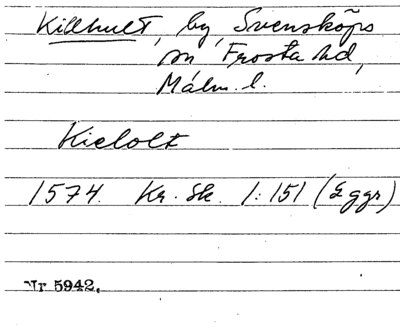 Killhult, by, Svensköps
sn Frosta hd,
Malm. l.
Kielolt
1574. Kr. Sk. 1:151 (2 ggr)
Nr 5942.